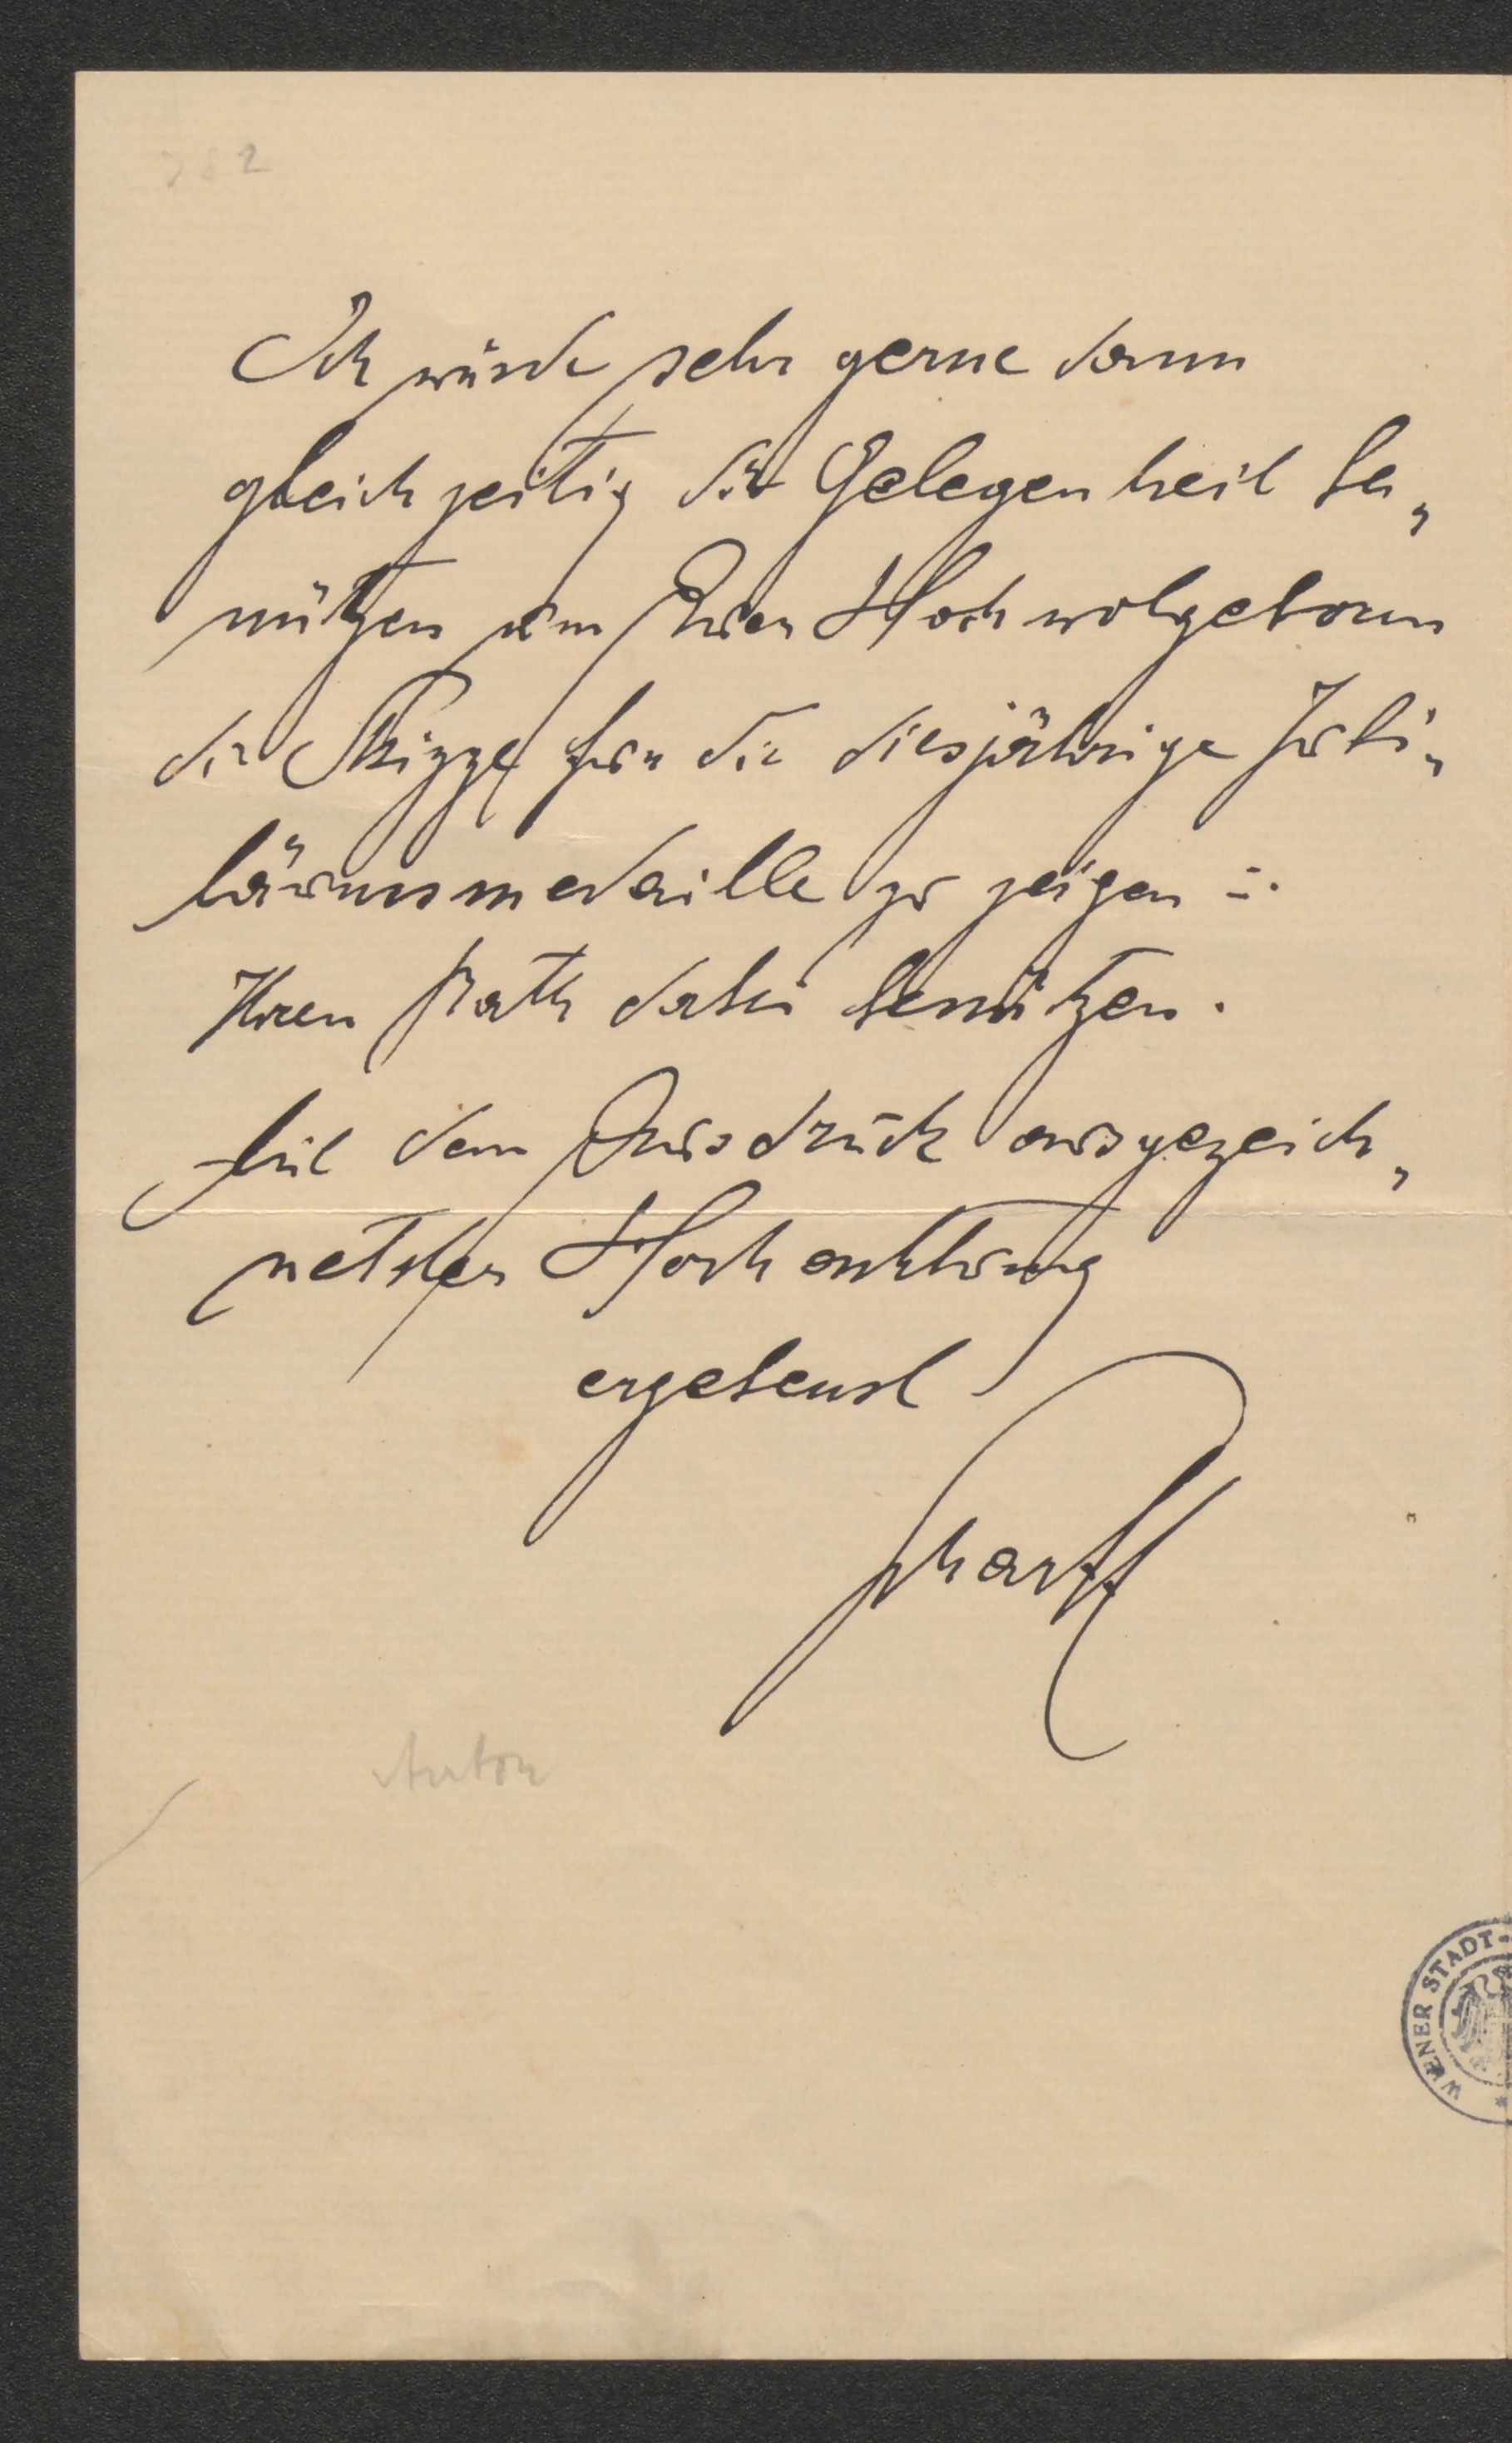 782
Ich würde sehr gerne dann
gleichzeitig die Gelegenheit be„
nützen um Euer Hochwolgeboren
die Skizze für die diesjährige Jubi„
läumsmedaille zu zeigen u.
Ihren Rath dabei benützen.
Mit dem Ausdruck ausgezeich„
netster Hochachtung
ergebenst
Scharff
Anton
WIENER STADT-